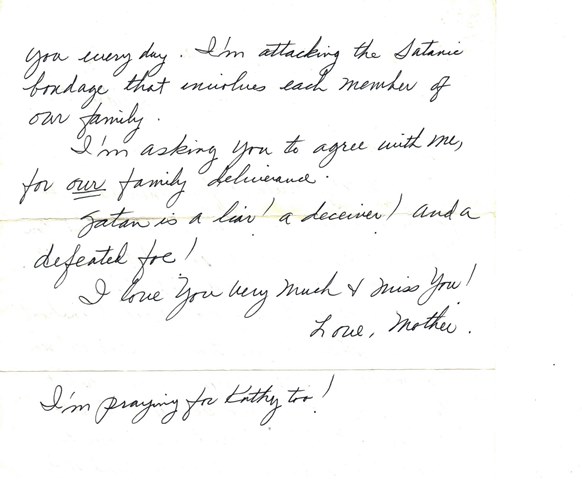 you every day. I'm attacking the Satanic
bondage that involves each member of
our family.
I'm asking you to agree with me,
for our family deliverance.
Satan is a liar! a deceiver! and a
defeated foe!
I love You very much & miss You!
Love, Mother.
I'm praying for Kathy too!